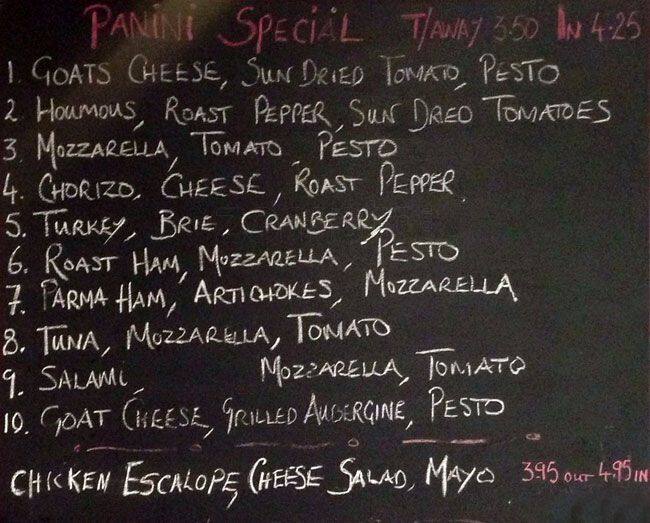 PANINI SPECIAL T/AWAY 3.50 IN 4.25
1. GOATS CHEESE, SUN DRIED TOMATO, PESTO
2 HOUMOUS, ROAST PEPPER, SUN DRIED TOMATOES
3. MOZZARELLA, TOMATO, PESTO
4. CHORIZO, CHEESE, ROAST PEPPER
5. TURKEY, BRIE, CRANBERRY
6. ROAST HAM, MOZZARELLA, PESTO
7. PARMA HAM, ARTICHOKES, MOZZARELLA
8. TUNA, MOZZARELLA, TOMATO
9. SALAMI, MOZZARELLA, TOMATO
10. GOAT CHEESE, GRILLED AUBERGINE, PESTO
CHICKEN ESCALOPE, CHEESE SALAD, MAYO 3.95 OUT 4.95 IN